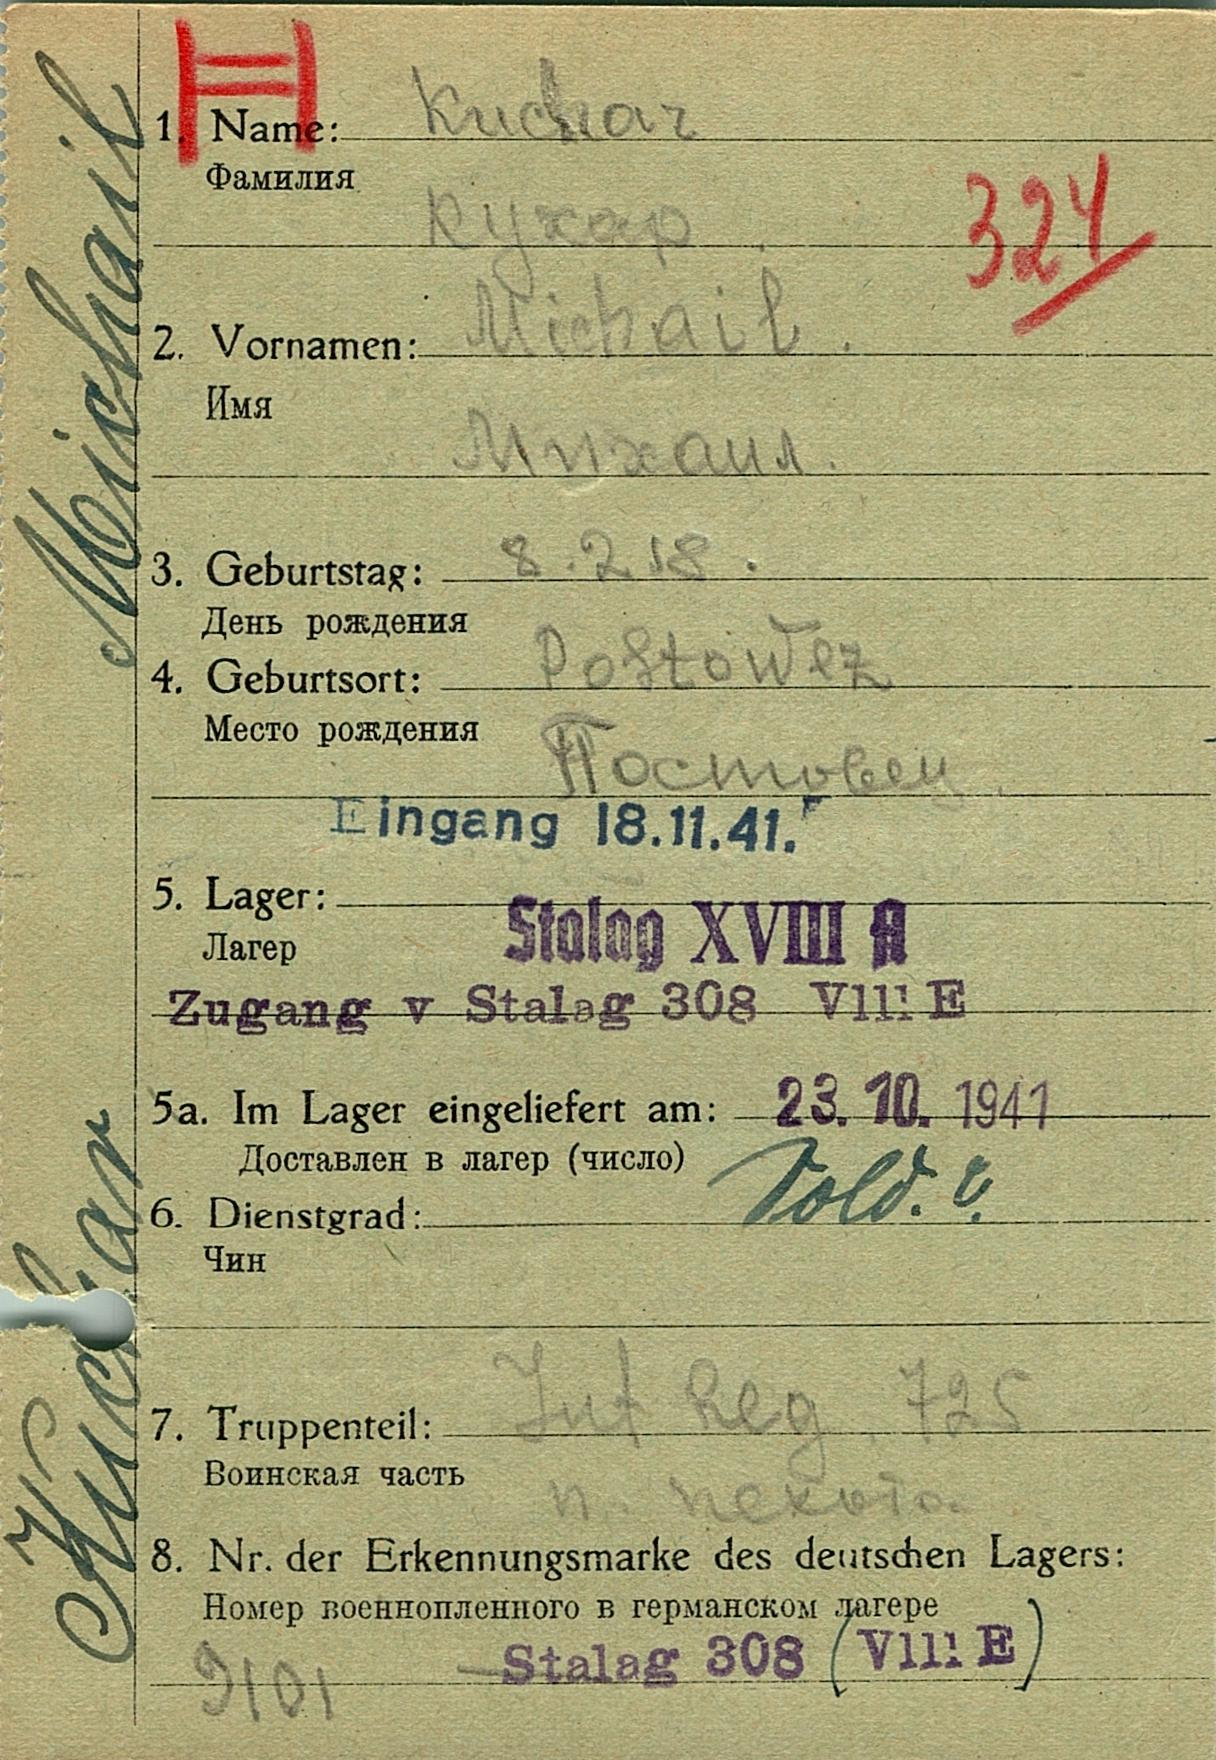 H
1. Name: Kuchar
Фамилия
Кухар
324
2. Vornamen: Michail.
Имя
Михаил.
3. Geburtstag: 8.2.18.
День рождения
4. Geburtsort: Postowez
Место рождения
Постовец
Eingang 18.11.41.
5. Lager:
Лагер
Stalag XVIII A
Zugang v Stalag 308 VIII E
5a. Im Lager eingeliefert am: 23. 10. 1941
Доставлен в лагер (число)
6. Dienstgrad: Sold.
Чин
7. Truppenteil: Inf Reg. 725
Воинская часть
п. пехота.
8. Nr. der Erkennungsmarke des deutschen Lagers:
Номер военнопленного в германском лагере
9101 Stalag 308 (VIII E)
Kuchar Michail